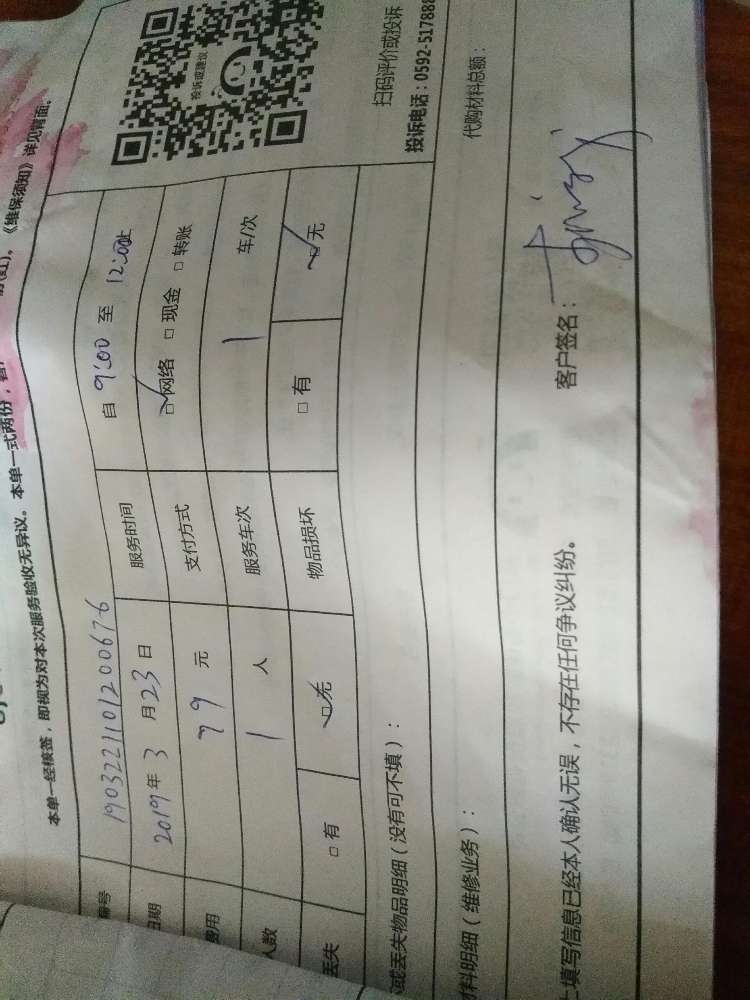 本单一经核签，即视为对本次服务验收无异议。本单一式两份，
《维保须知》详见背面。
编号 190322110120067-6
日期 2019年3月23日 服务时间 自 9:00 至 12:00止
费用 79 元 支付方式 □网络 □现金 □转账
人数 1 人 服务车次 1 车/次
丢失 □有 □无 物品损坏 □有 □无
投诉或建议
扫码评价或投诉
投诉电话：0592-517888
或丢失物品明细（没有可不填）：
材料明细（维修业务）： 代购材料总额：
填写信息已经本人确认无误，不存在任何争议纠纷。 客户签名：